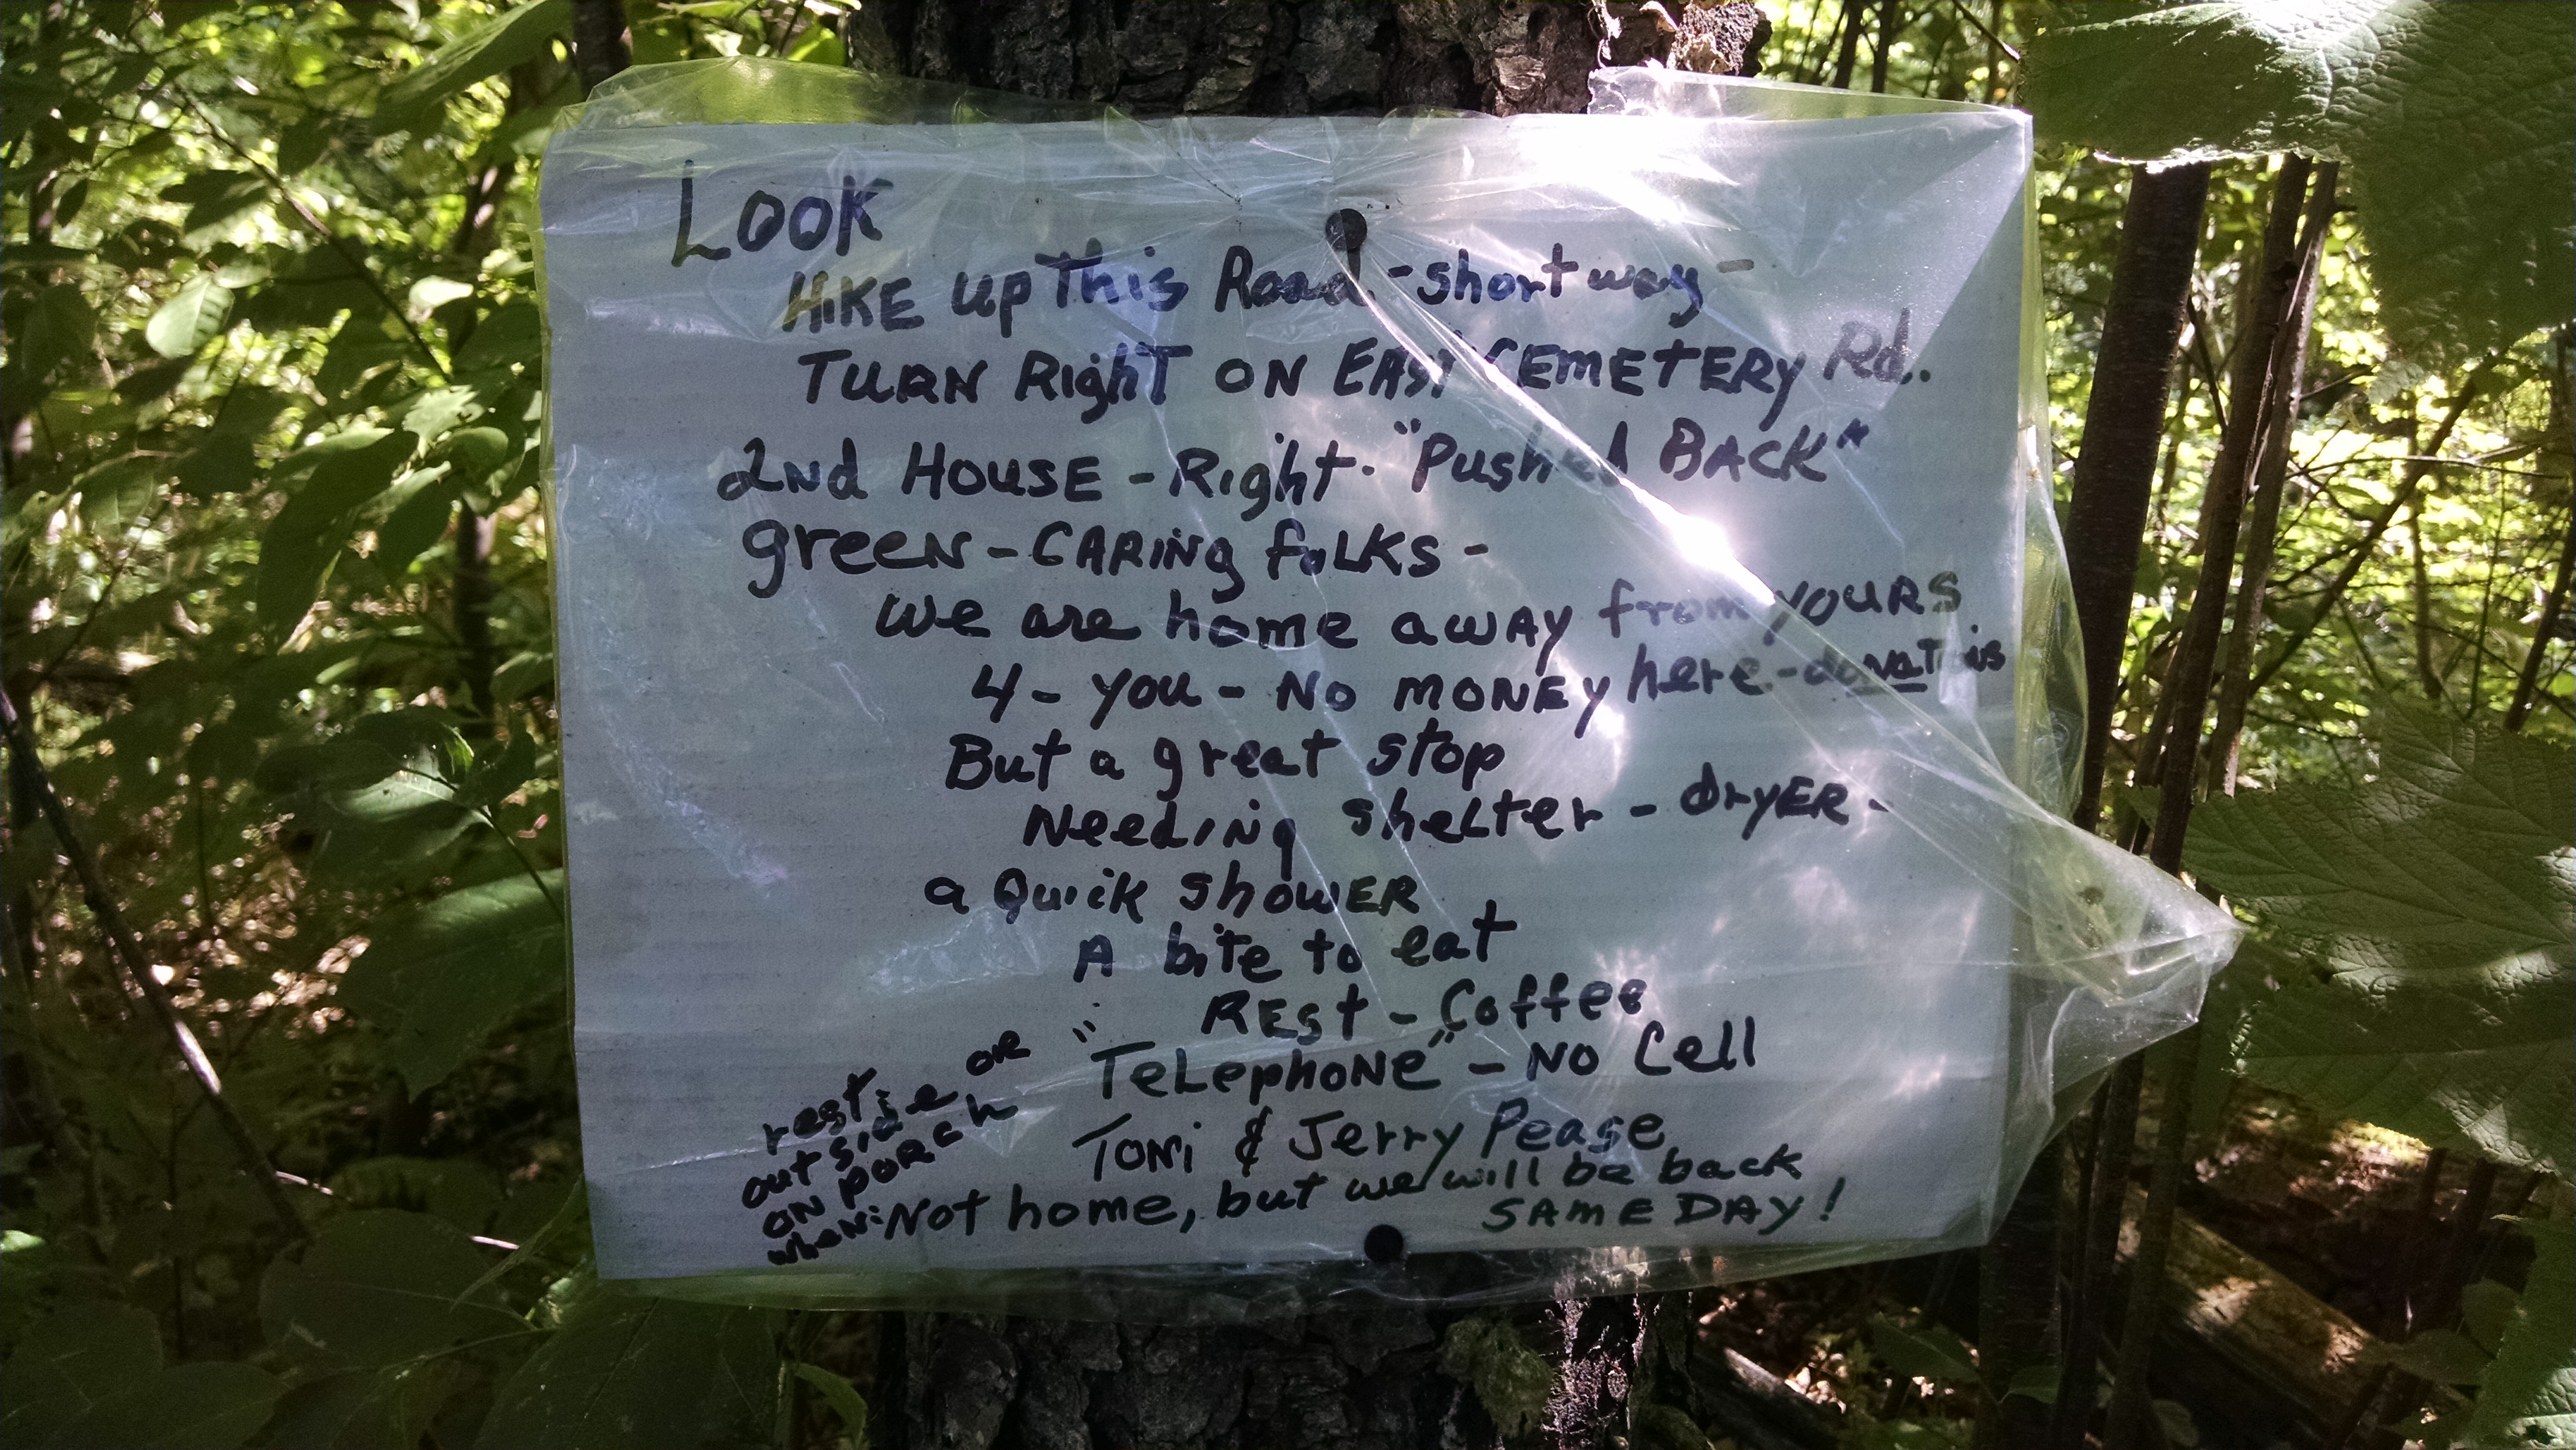 Look
HIKE up This Road - short way -
TURN Right ON EAST CEMETERY Rd.
2Nd HOUSE - Right - "Pushed BACK"
green - CARiNg folKS -
we are home away from YOURS
4 - you - No MONEY here -
But a great stop
Needing shelter - dryER -
a Quick ShowER
A bite to eat
" REst - Coffee
TeLephoNe" - No Cell
Toni & Jerry Pease
rest: outside or
on porch
when: Not home, but we will be back
SAME DAY!